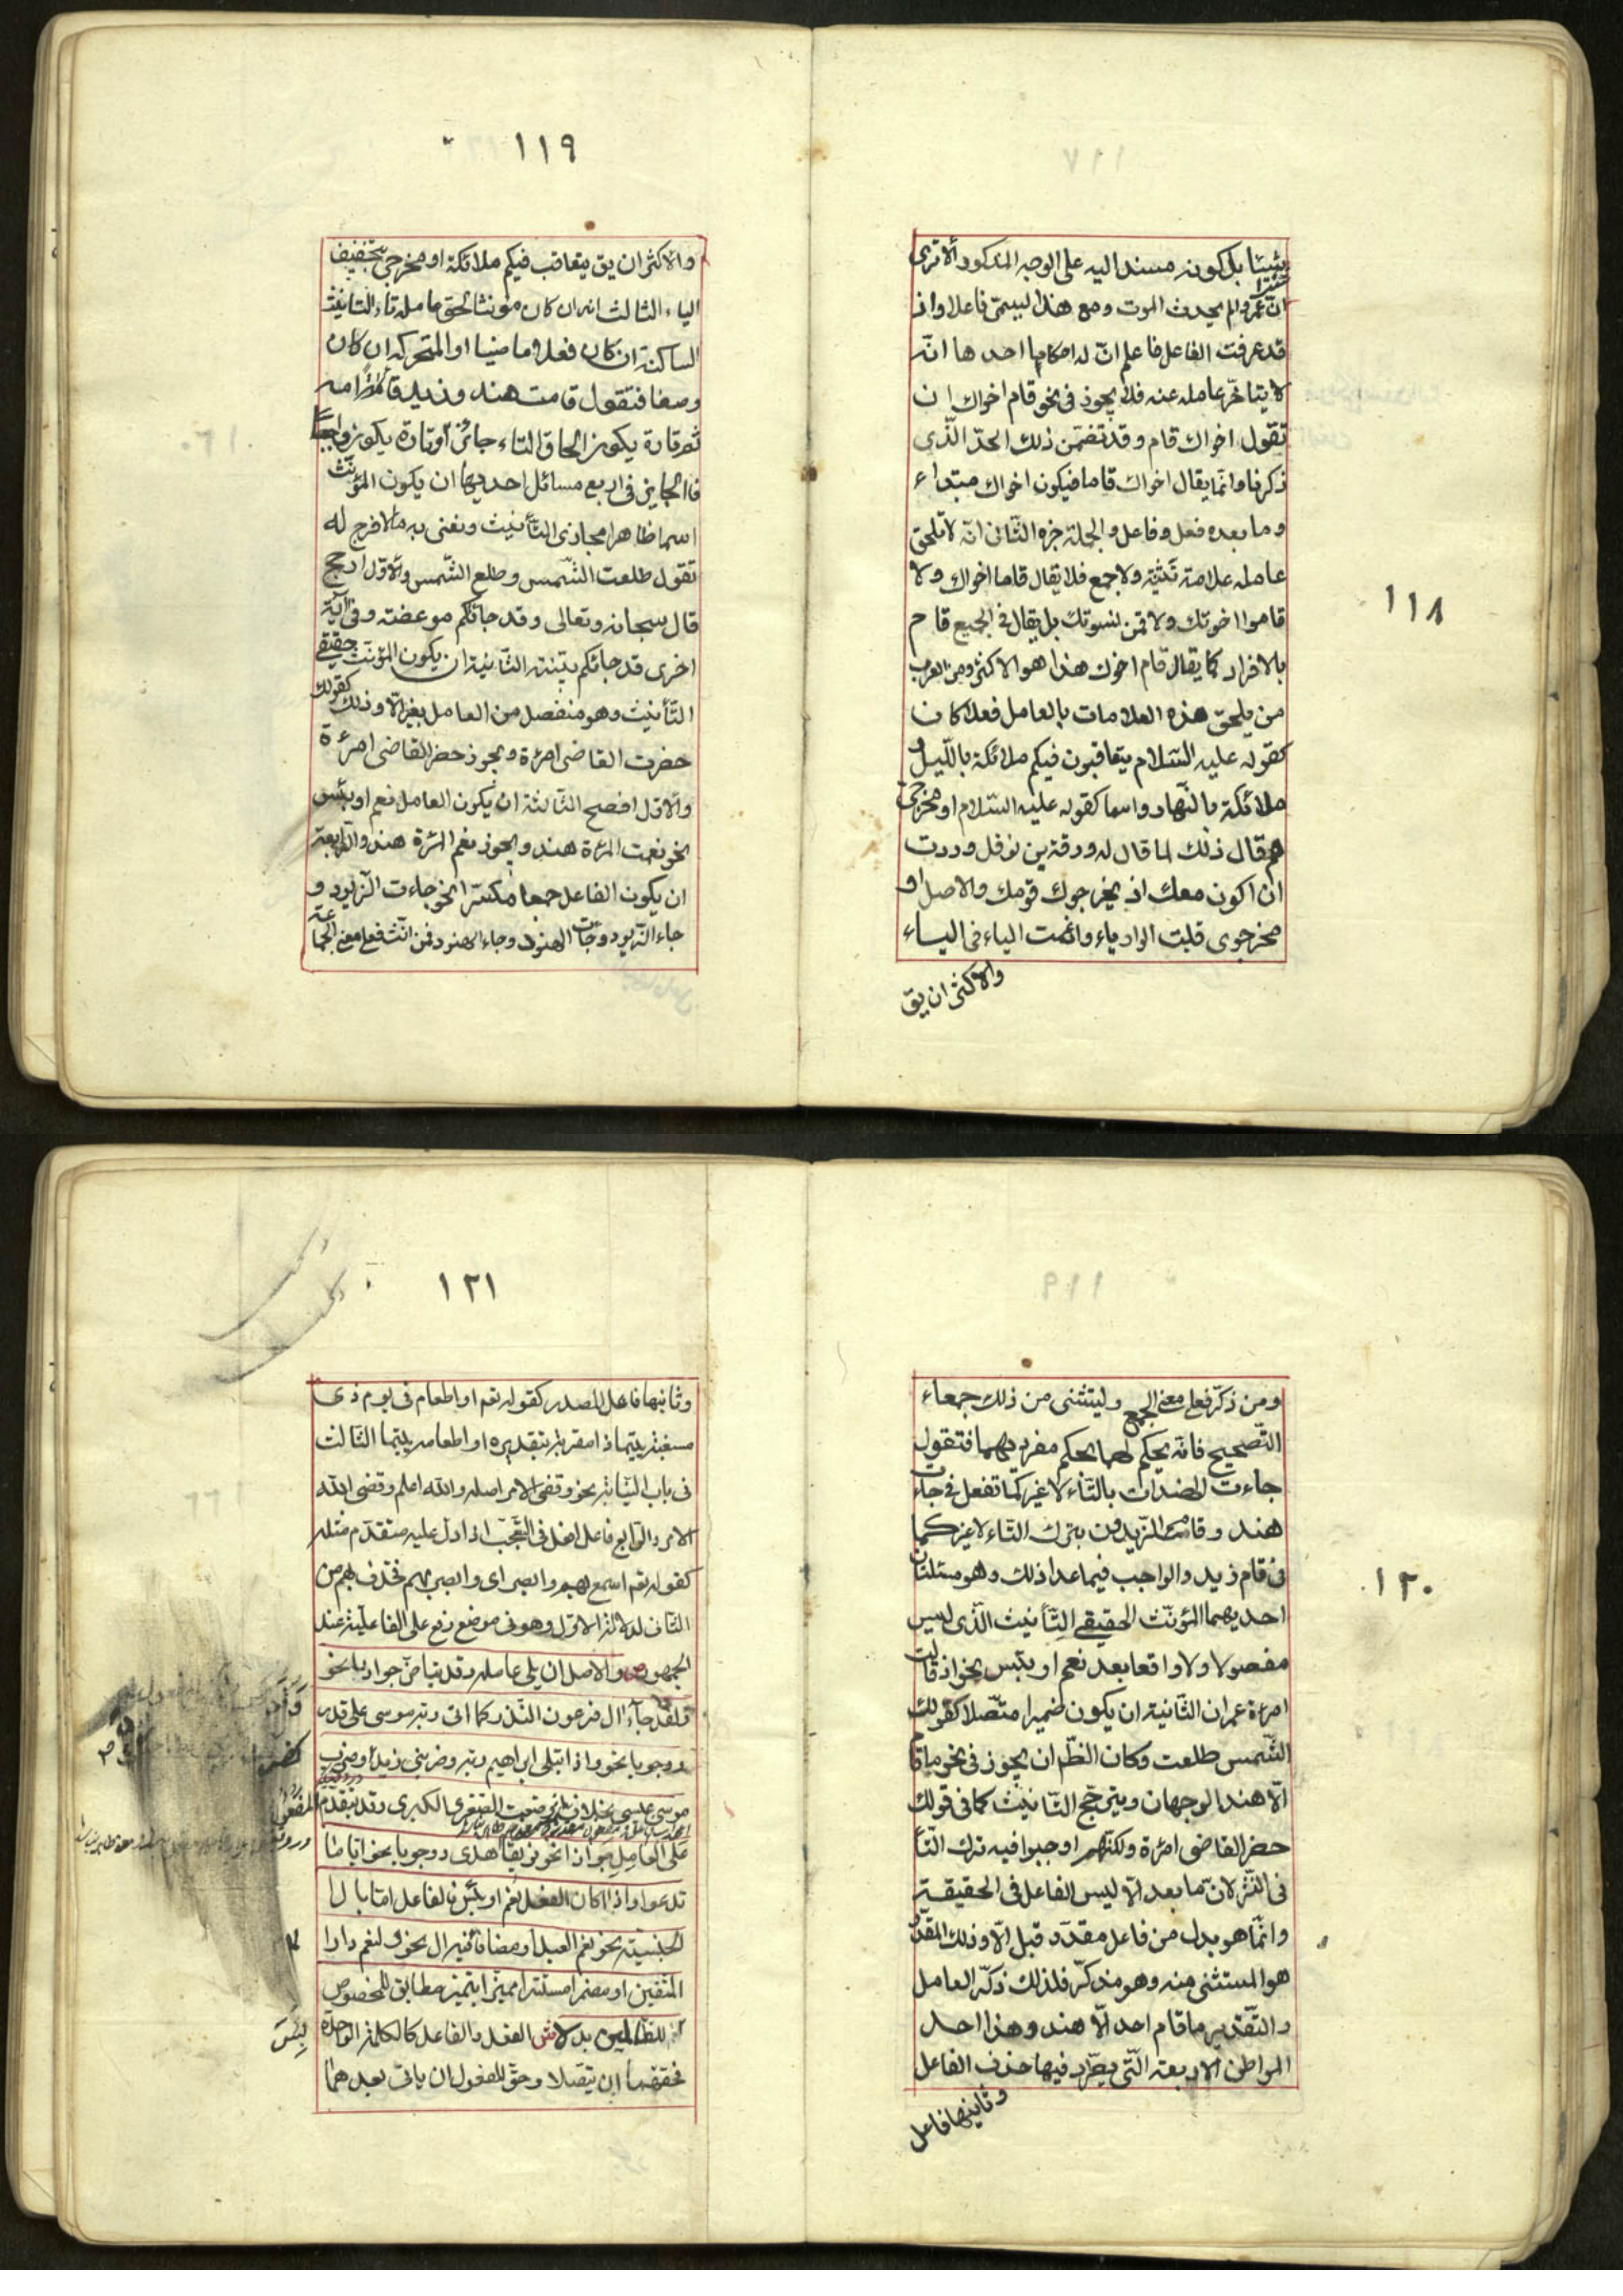 ١١٨
شيئا بل كونه مسندا اليه على الوجه المذكور ألا ترى
انّ عمروا لم يحدث الموت ومع هذا ليسمّى فاعلا واذ
قد عرفت الفاعل فاعلم انّ له احكاما احدها انّه
لا يتاخّر عامله عنه فلا يجوز فى نحو قام اخواك ان
تقول اخواك قام و قد تضمّن ذلك الحدّ الّذى
ذكرنا وانّما يقال اخواك قاما فيكون اخواك مبتداء
وما بعده فعل وفاعل والجملة خبره الثّانى انّه لا تلحق
عامله علامة تثنية ولا جمع فلا يقال قاما اخواك ولا
قاموا اخوتك ولا قمن نسوتك بل يقال فى الجميع قام
بالافراد كما يقال قام اخوك هذا هو الاكثر ومن العرب
من يلحق هذه العلامات بالعامل فعلا كان
كقوله عليه السّلام يتعاقبون فيكم ملائكة بالّليل و
ملائكة بالنّهار واسما كقوله عليه السّلام او مخرجىّ
هم قال ذلك لما قال له ورقة بن نوفل وددت
ان اكون معك اذ يخرجوك قومك والاصل او
مخرجوى قلبت الواو ياء وادغمت الياء فى الياء
والاكثر ان يق
١١٩
والاكثر ان يق يتعاقب فيكم ملائكة او مخرجى بتخفيف
الياء الثالث انه ان كان مؤنثا لحق عامله تاء التانيث
الساكنة ان كان فعلا ماضيا او المتحركة ان كان
وصفا فتقول قامت هند و زيد قائمة امه
ثم تارة يكون الحاق التاء جائزا وتارة يكون واجبا
فالجايز فى اربع مسائل احديها ان يكون المؤنّث
اسما ظاهرا مجازى التّأنيث ونعنى به ما لا فرج له
تقول طلعت الشّمس وطلع الشّمس والاوّل ارجح
قال سبحانه وتعالى وقد جائكم موعضة وفى آية
اخرى قد جائكم بيّنة الثّانية ان يكون المؤنث حقيقى
التّأنيث وهو منفصل من العامل بغير الّا وذلك كقولك
حضرت القاضى امرئة ويجوز حضر القاضى امرئة
والاوّل افصح الثّالثة ان يكون العامل نعم او بئس
نحو نعمت المرئة هند ويجوز نعم المرئة هند والرّابعة
ان يكون الفاعل جمعا مكسّرا نحو جاءت الزّيود و
جاء الزّيود وجائت الهنود وجاء الهنود فمن انّث فعلى معنى الجماعة
١٢٠
ومن ذكّر فعلى معنى الجمع وليتثنى من ذلك جمعاء
التّصحيح فانّه يحكم لهما بحكم مفرديهما فتقول
جاءت الهندات بالتّاء لا غير كما تفعل فى جاءت
هند و قامت الزّيدون بترك التاء لا غير كما
فى قام زيد والواجب فيما عدا ذلك وهو مسئلتان
احديهما المؤنّث الحقيقى التّأنيث الّذى ليس
مفصولا ولا واقعا بعد نعم او بئس نحو اذ قالت
امرئة عمران الثّانية ان يكون ضميرا متّصلا كقولك
الشّمس طلعت وكان الظّم ان يجوز فى نحو ما قام
الّا هند الوجهان ويترجّح التّانيث كما فى قولك
حضر القاضى امرئة ولكنّهم اوجبوا فيه ترك التّاء
فى النّثر لانّ ما بعد الّا ليس الفاعل فى الحقيقة
وانّما هو بدل من فاعل مقدّر قبل الّا وذلك المقدّر
هو المستثنى منه وهو مذكّر فلذلك ذكّر العامل
والتّقدير ما قام احد الّا هند وهذا احد
المواطن الاربعة الّتى يطّرد فيها حذف الفاعل
وثانيها فاعل
١٢١
وثانيها فاعل المصدر كقوله تعم او اطعام فى يوم ذى
مسغبة يتيما ذا مقربة تقديره او اطعامه يتيما الثّالث
فى باب النّيابة نحو وقضى الامر اصله والله اعلم وقضى الله
الامر والرّابع فاعل افعل فى التّعجّب اذا دلّ عليه متقدّم مثله
كقوله تعم اسمع بهم وابصر اى وابصر بهم فحذف بهم من
الثّانى لدلالة الاوّل وهو فى موضع رفع على الفاعلية عند
الجمهور ص والاصل ان يلى عامله وقد يتاخّر جوازا نحو
ولقد جاء آل فرعون النّذر كما اتى ربّه موسى على قدر
ووجوبا نحو واذ ابتلى ابراهيم ربّه وضربنى زيد وضرب
موسى عيسى بخلاف ارضعت الصّغرى الكبرى وقد يتقدّم المفعول
على العامل جوازا نحو فريقا هدى ووجوبا نحو ايّا ما
تدعوا واذا كان الفعل نعم او بئس فالفاعل امّا بال
الجنسيّة نحو نعم العبد او مضافا لما فيه ال نحو ولنعم دار
المتّقين او مضمرا مستترا مميّزا بتميز مطابق للمخصوص
للظّالمين بدلا ش الفعل والفاعل كالكلمة الواحدة
فحقهما ان يتّصلا وحقّ المفعول ان ياتى بعدهما
بئس